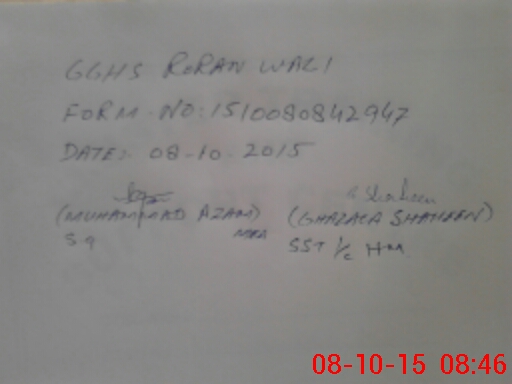 GGHS RORAN WALI
FORM NO: 1510080842947
DATE: 08-10-2015
(MUHAMMAD AZAM) (GHAZALA SHAHEEN)
MEA
SST I/c HM
08-10-15 08:46